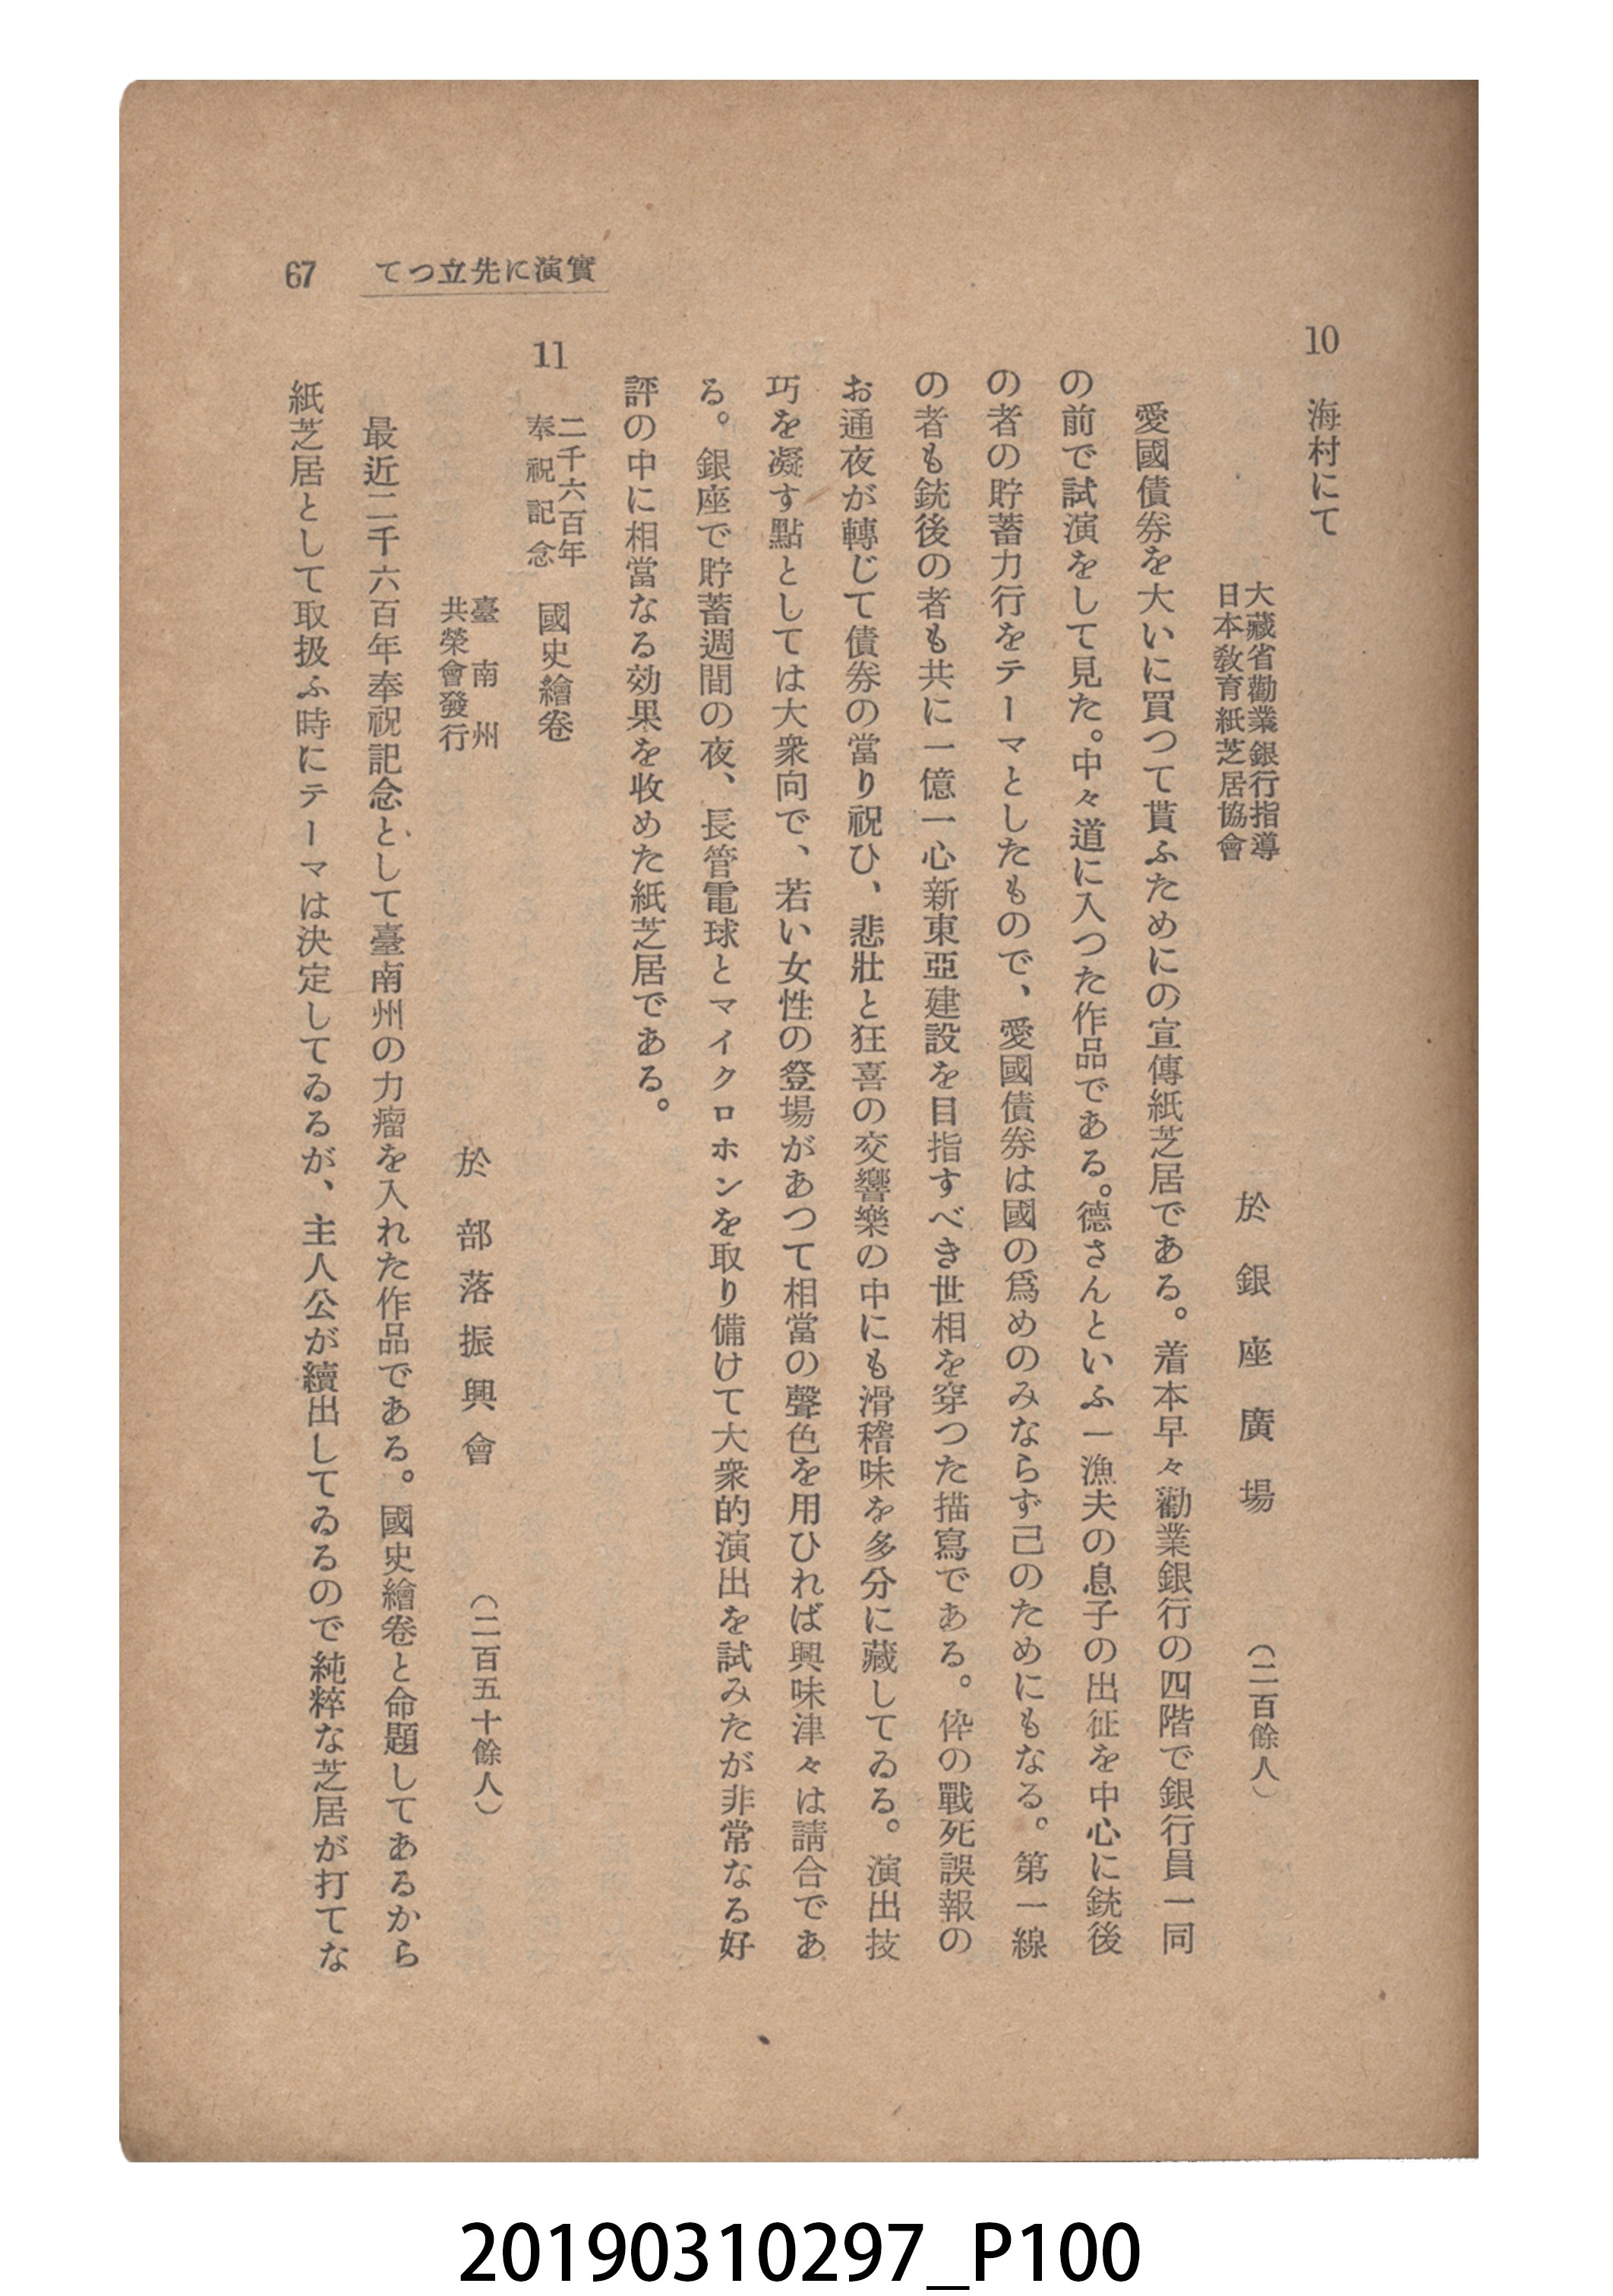 實演に先立つて
67
10 海村にて
大藏省勸業銀行指導
日本敎育紙芝居協會
於銀座廣場 （二百餘人）
愛國債券を大いに買つて貰ふためにの宣傳紙芝居である。着本早々勸業銀行の四階で銀行員一同
の前で試演をして見た。中々道に入つた作品である。德さんといふ一漁夫の息子の出征を中心に銃後
の者の貯蓄力行をテーマとしたもので、愛國債券は國の爲めのみならず己のためにもなる。第一線
の者も銃後の者も共に一億一心新東亞建設を目指すべき世相を穿つた描寫である。伜の戰死誤報の
お通夜が轉じて債券の當り祝ひ、悲壯と狂喜の交響樂の中にも滑稽味を多分に藏してゐる。演出技
巧を凝す點としては大衆向で、若い女性の登場があつて相當の聲色を用ひれば興味津々は請合であ
る。銀座で貯蓄週間の夜、長管電球とマイクロホンを取り備けて大衆的演出を試みたが非常なる好
評の中に相當なる効果を收めた紙芝居である。
11 二千六百年
奉祝記念
國史繪卷
臺南州
共榮會發行
於部落振興會 （二百五十餘人）
最近二千六百年奉祝記念として臺南州の力瘤を入れた作品である。國史繪卷と命題してあるから
紙芝居として取扱ふ時にテーマは決定してゐるが、主人公が續出してゐるので純粹な芝居が打てな
20190310297_P100